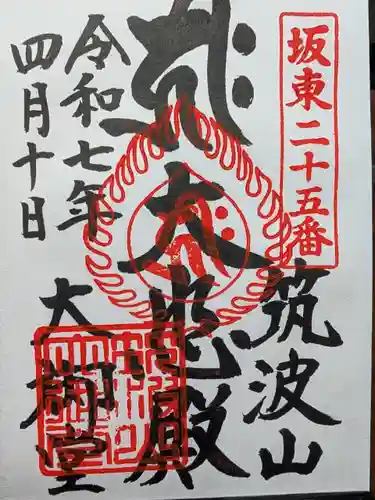 坂東二十五番
筑波山
大悲殿
令和七年
四月十日
大御堂